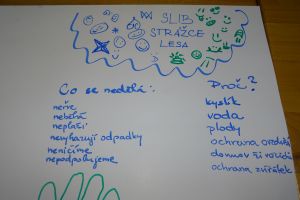 SLIB
STRÁŽCE
LESA
Co se nedělá:
neřve
neběhá
neplaší
nevyhazují odpadky
neničíme
nepodpalujeme
Proč?
kyslík
voda
plody
ochrana ovzduší
domov
ochrana zvířátek